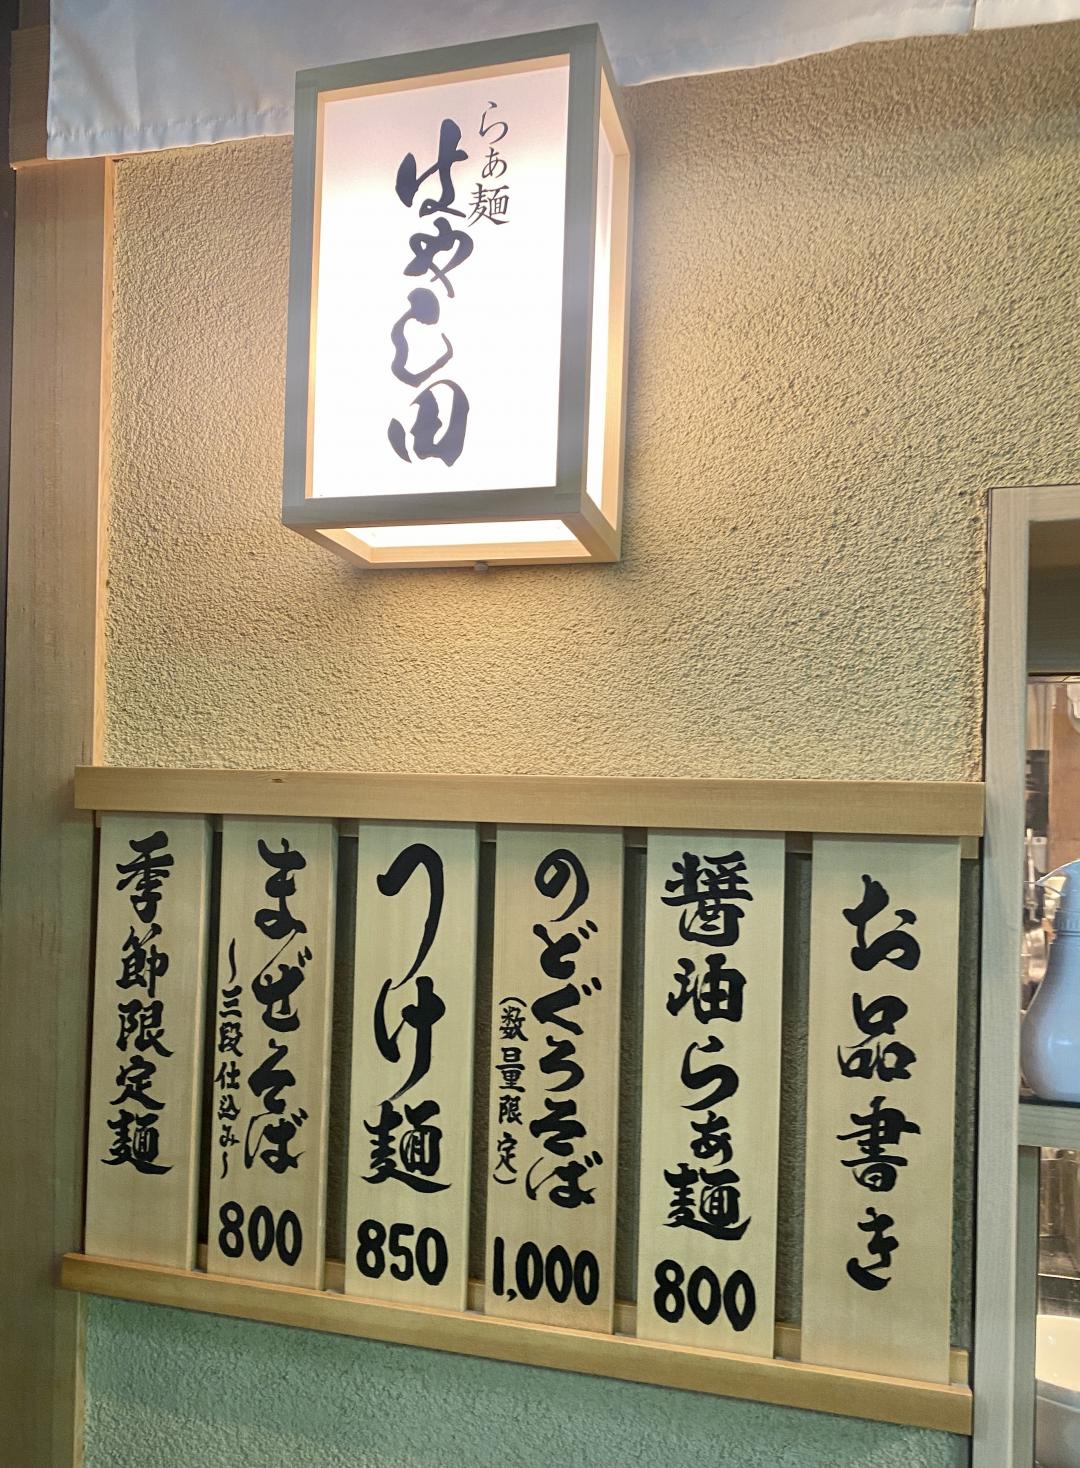 らぁ麺
はやし田
お品書き
醤油らぁ麺 800
のどぐろそば
（数量限定）
1,000
つけ麺 850
まぜそば
〜三段仕込み〜
800
季節限定麺